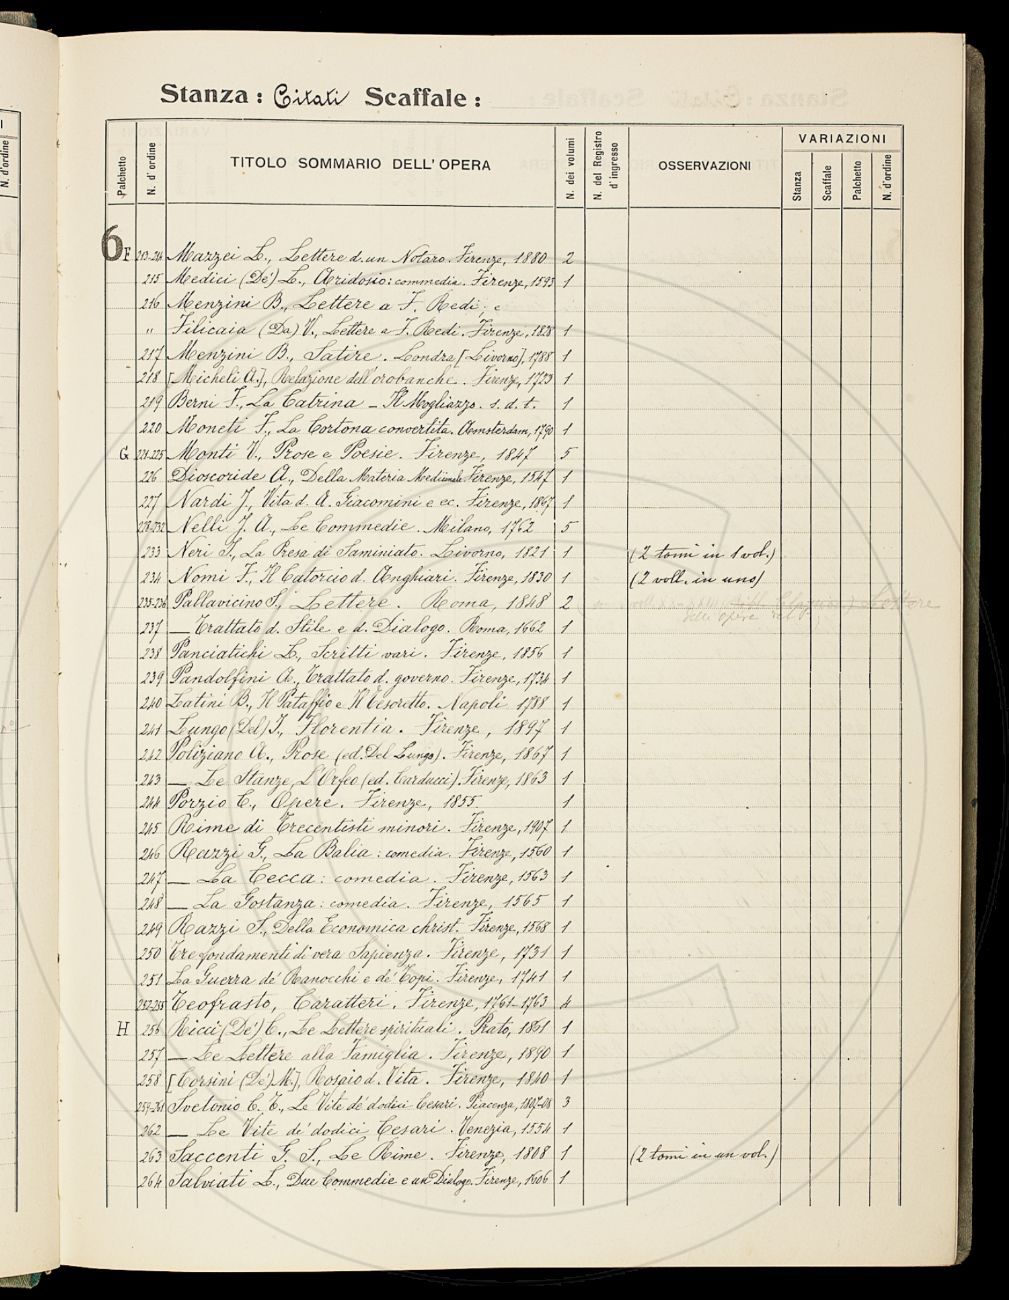 Stanza: Citati Scaffale:
Palchetto N. d'ordine TITOLO SOMMARIO DELL'OPERA N. dei volumi N. del Registro d'ingresso OSSERVAZIONI VARIAZIONI Stanza Scaffale Palchetto N. d'ordine
N. d'ordine
6 F 213-214 Mazzei L., Lettere d. un Notaro. Firenze, 1880 2
215 Medici (De') L., Aridosio: commedia. Firenze, 1593 1
216 Menzini B., Lettere a F. Redi; e
" Filicaia (Da) V., Lettere a F. Redi. Firenze, 1828 1
217 Menzini B., Satire. Londra [Livorno], 1788 1
218 [Micheli A.], Relazione dell'orobanche. Firenze, 1723 1
219 Berni F., La Catrina - Il Mogliazzo. s. d. t. 1
220 Moneti F., La Cortona convertita. Amsterdam, 1790 1
G 221-225 Monti V., Prose e Poesie. Firenze, 1847 5
226 Dioscoride A., Della Materia Medicinale. Firenze, 1547 1
227 Nardi J., Vita d. A. Giacomini e ec. Firenze, 1867 1
228-232 Nelli J. A., Le Commedie. Milano, 1762 5
233 Neri I., La Presa di Saminiato. Livorno, 1821 1 (2 tomi in 1 vol.)
234 Nomi F., Il Catorcio d. Anghiari. Firenze, 1830 1 (2 voll. in uno)
235-236 Pallavicino S., Lettere. Roma, 1848 2 Lettere
237 — Trattato d. Stile e d. Dialogo. Roma, 1662 1
238 Panciatichi L., Scritti vari. Firenze, 1856 1
239 Pandolfini A., Trattato d. governo. Firenze, 1734 1
240 Latini B., Il Pataffio e Il Tesoretto. Napoli 1788 1
241 Lungo (Del) I., Florentia. Firenze, 1897 1
242 Poliziano A., Prose (ed. Del Lungo). Firenze, 1867 1
243 — Le Stanze, L'Orfeo (ed. Carducci). Firenze, 1863 1
244 Porzio C., Opere. Firenze, 1855. 1
245 Rime di Trecentisti minori. Firenze, 1907 1
246 Razzi G., La Balia: comedia. Firenze, 1560 1
247 — La Cecca: comedia. Firenze, 1563 1
248 — La Gostanza: comedia. Firenze, 1565 1
249 Razzi S., Della Economica christ. Firenze, 1568 1
250 Tre fondamenti di vera Sapienza. Firenze, 1731 1
251 La Guerra de' Ranocchi e de' Topi. Firenze, 1741 1
252-255 Teofrasto, Caratteri. Firenze, 1761-1763 4
H 256 Ricci (De') C., Le Lettere spirituali. Prato, 1861 1
257 — Le Lettere alla Famiglia. Firenze, 1890 1
258 [Corsini (De') M.], Rosaio d. Vita. Firenze, 1840 1
259-261 Svetonio C. T., Le Vite de' dodici Cesari. Piacenza, 1807-08 3
262 — Le Vite de' dodici Cesari. Venezia, 1554 1
263 Saccenti G. S., Le Rime. Firenze, 1808 1 (2 tomi in un vol.)
264 Salviati L., Due Commedie e un Dialogo. Firenze, 1606 1